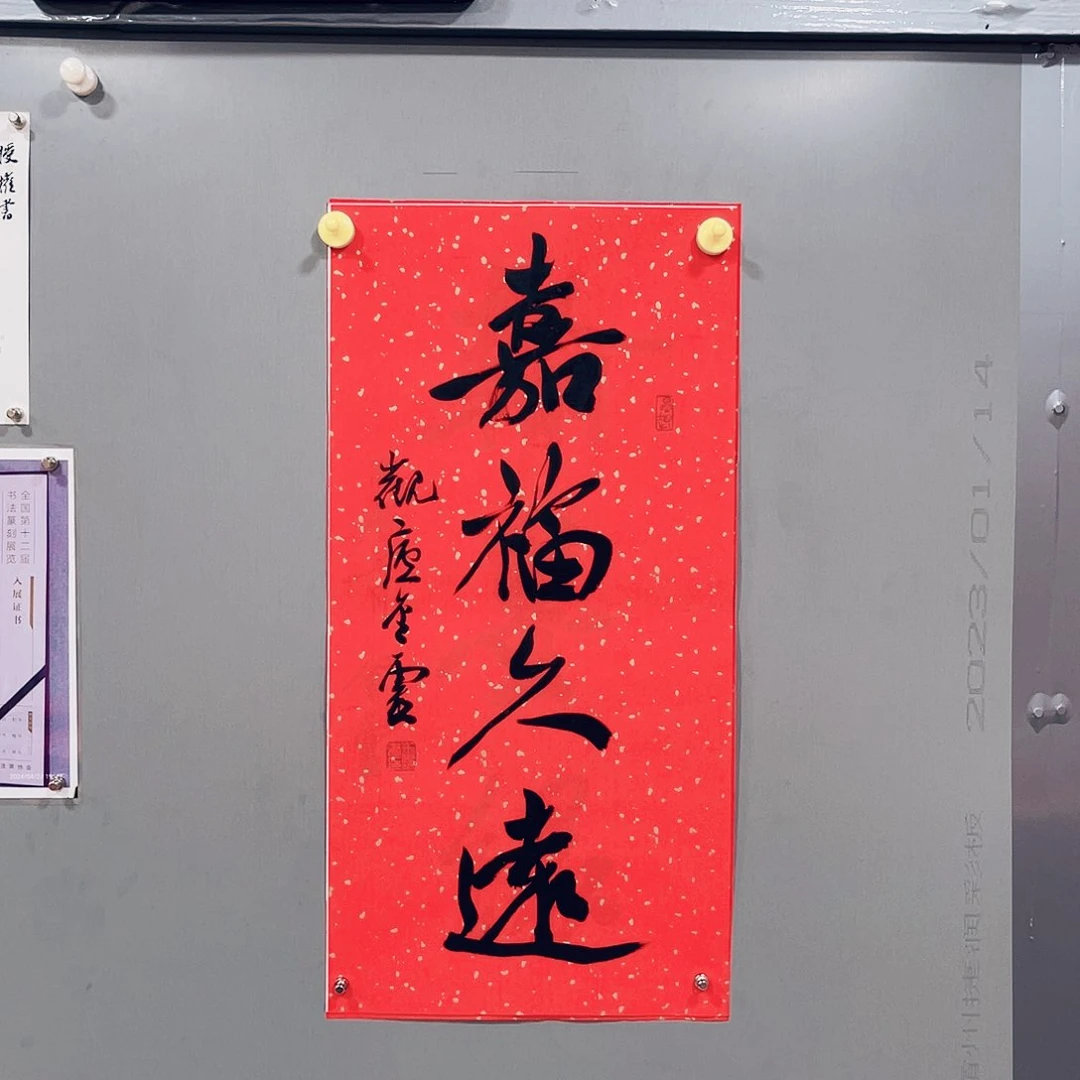 嘉福久遠
觀廬金靈
授權書
全国第十二届
书法篆刻展览
入展证书
2023/01/14